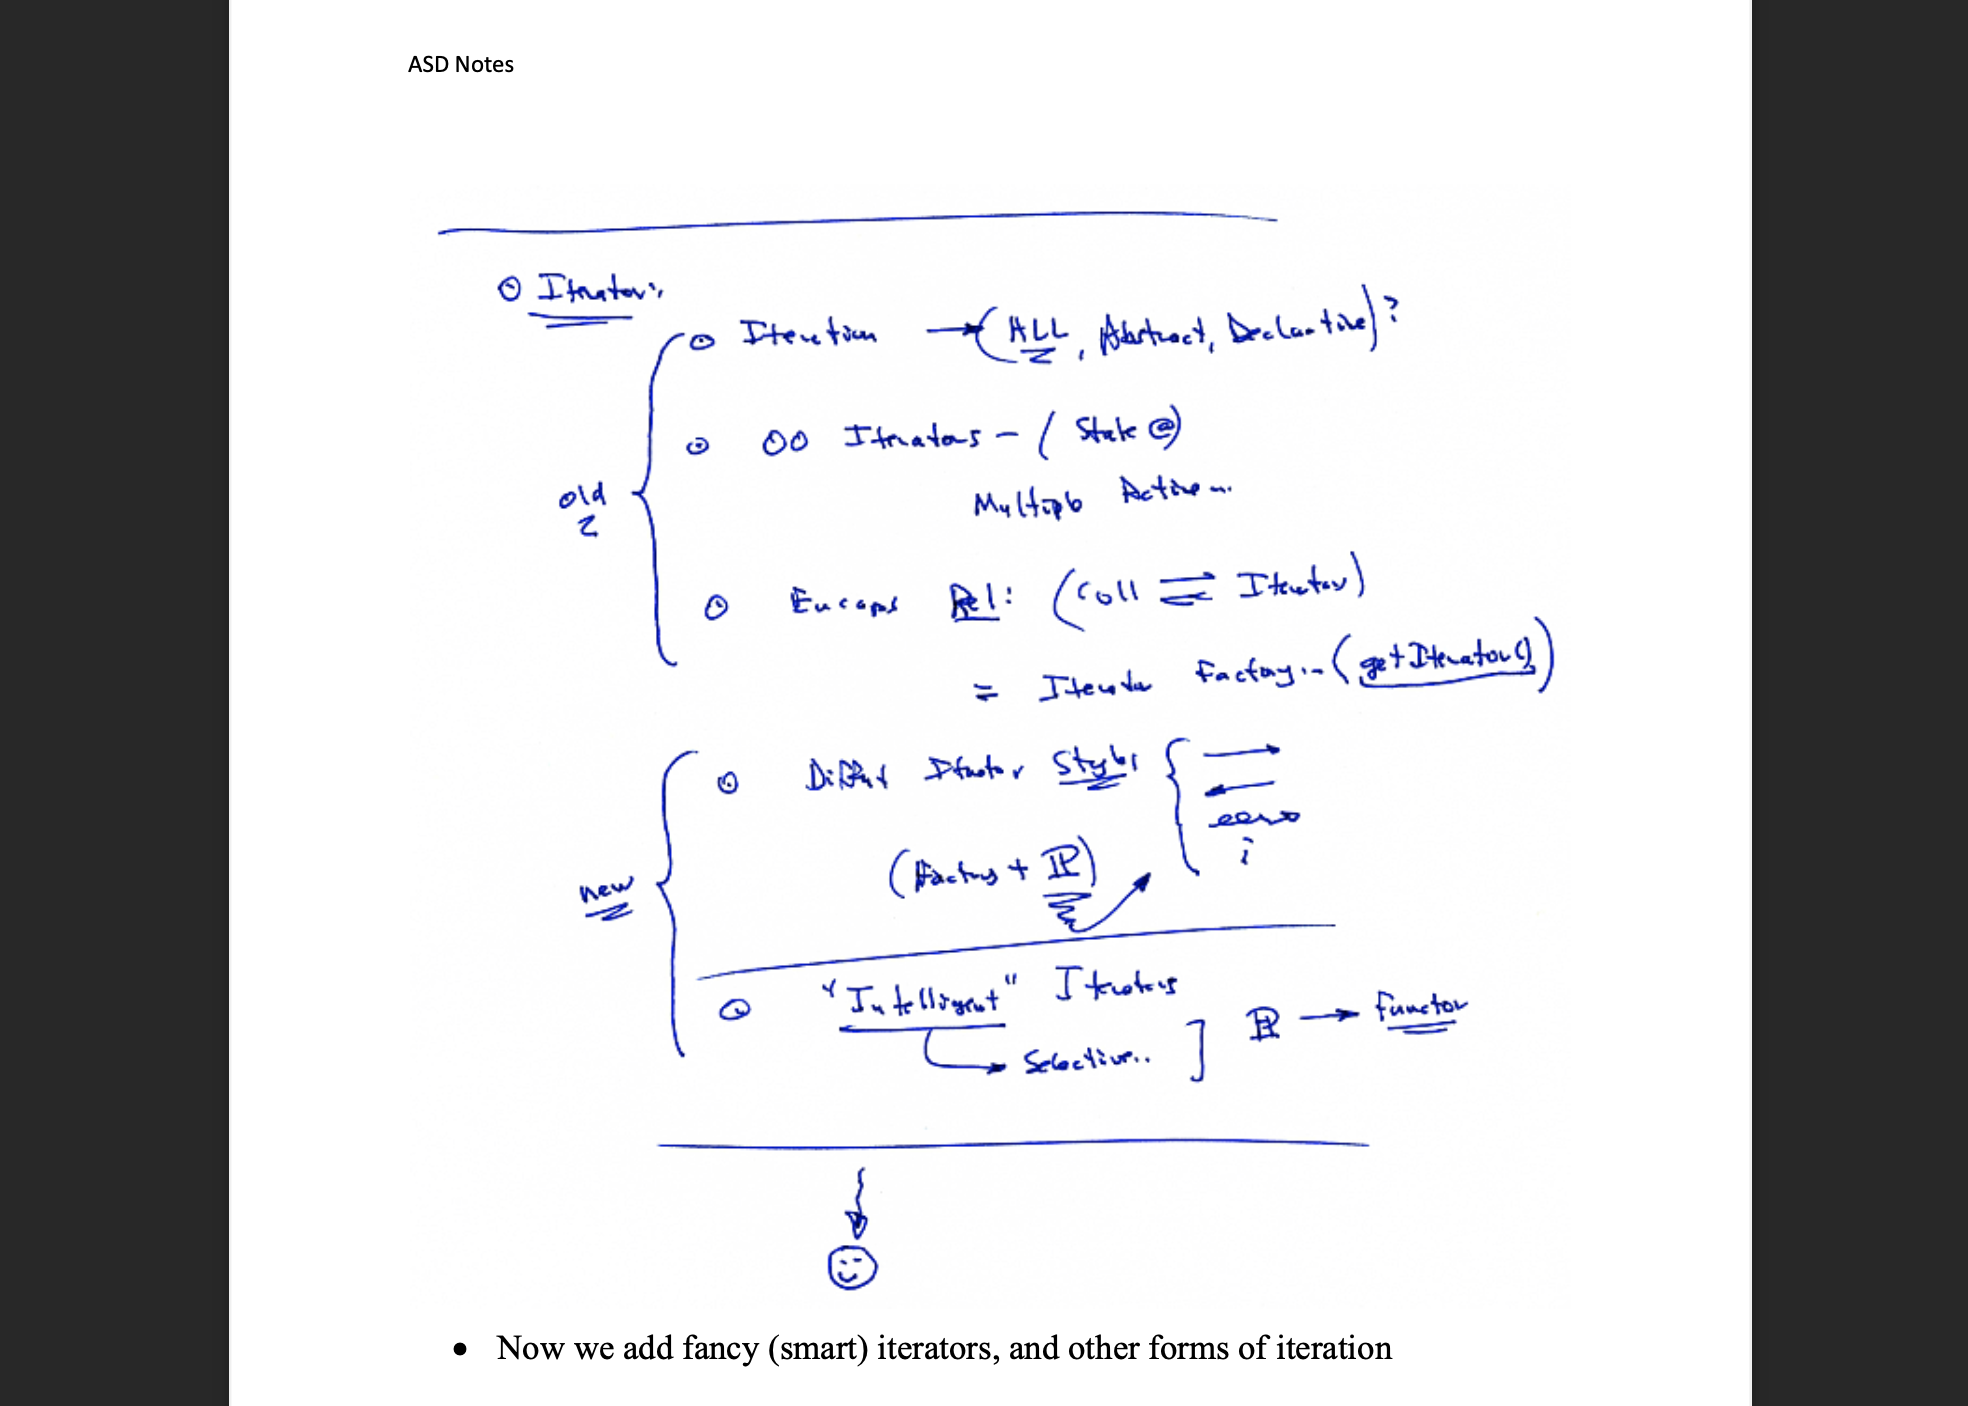 ASD Notes
Iterators
Iteration → (ALL, Abstract, Declarative)?
OO Iterators - (State @)
Multiple Active...
old
Encaps Rel: (Coll ⇌ Iterator)
= Iterator Factory.. (getIterator())
Different Iterator Styles {
(Factory + P)
new
"Intelligent" Iterators
Selective.. ] → functor
• Now we add fancy (smart) iterators, and other forms of iteration